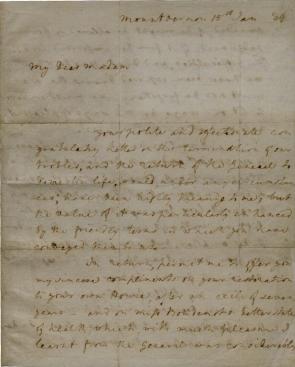 Mount Vernon 15th Jan
My Dear Madam
Your polite and affectionate con
gratulatory letter on the termination of our
troubles, and the return of the General to
life, would, under any circumstan
ces, have been highly pleasing to me; but
the value of it was particularly enhanced
by the friendly terms in which you have
conveyed them to me.
In return, permit me to offer you
my sincere compliments on your restoration
to your own House, after an exile of seven
years – and on Miss
of health, which with much pleasure I
learnt from the General was considerably